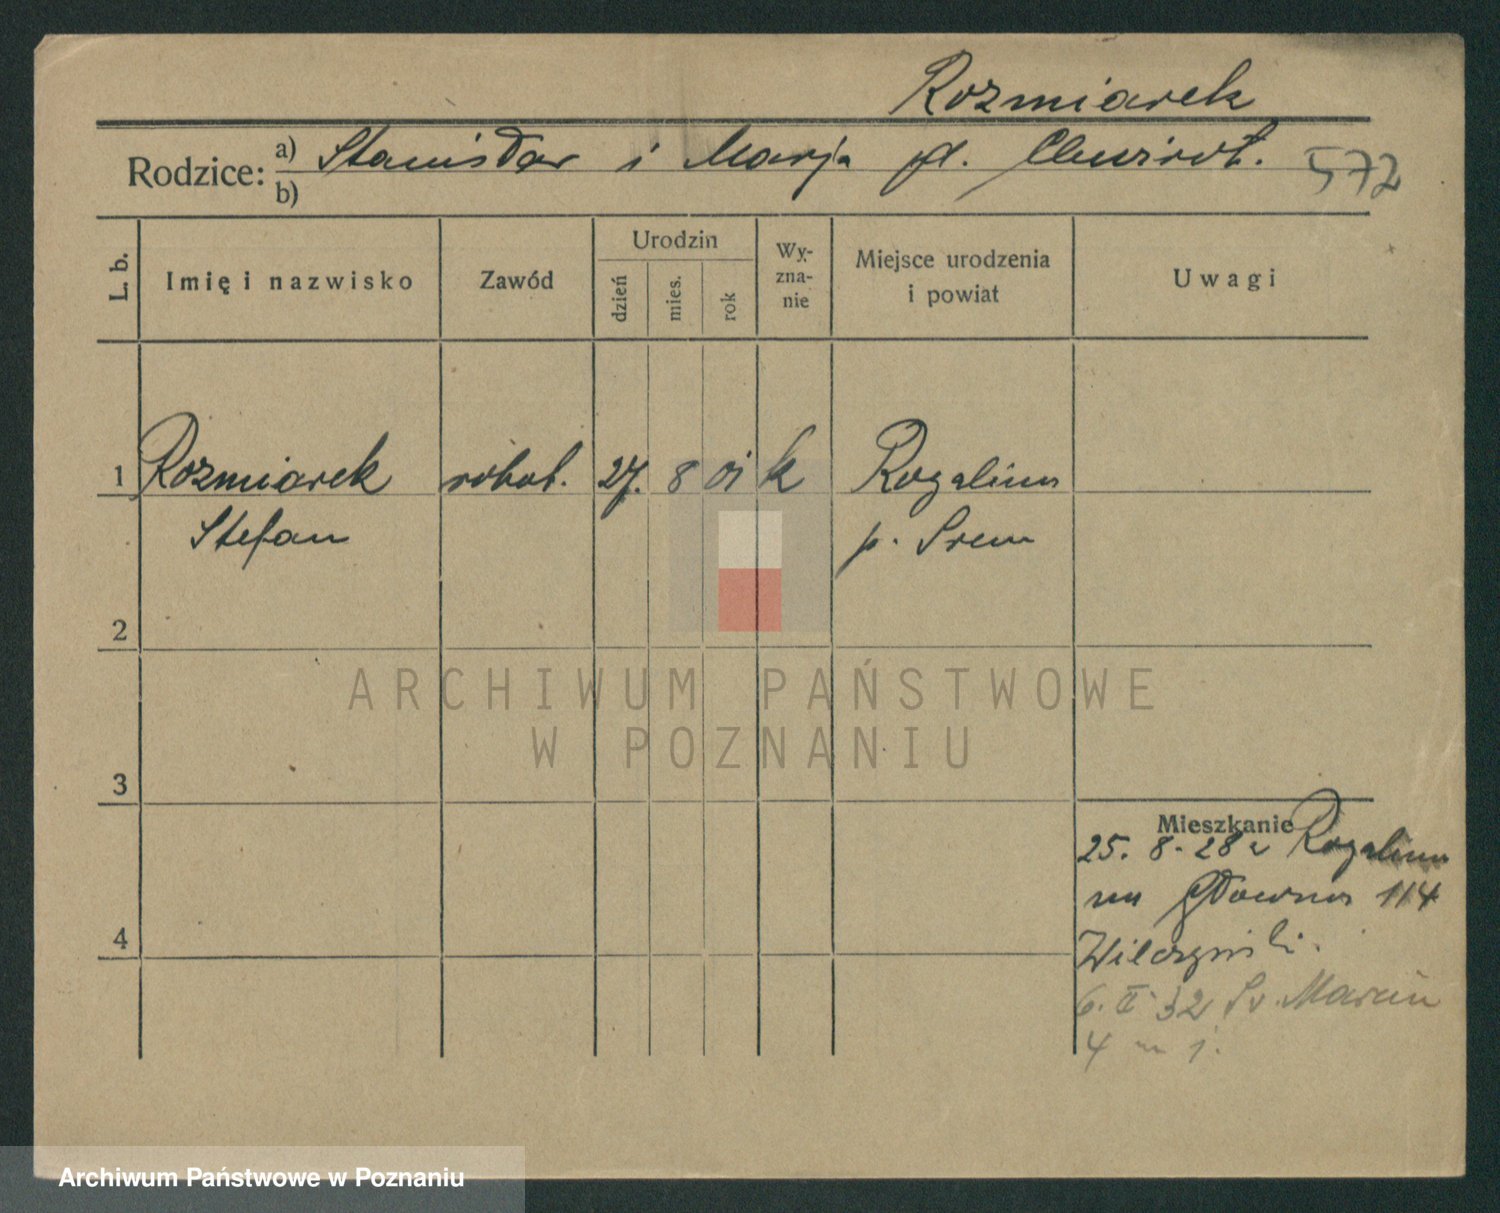 Rozmiarek
Rodzice: a) Stanisław i Marja
b)
572
L. b.
Imię i nazwisko
Zawód
Urodzin
dzień
mies.
rok
Wy-
zna-
nie
Miejsce urodzenia
i powiat
Uwagi
1 Rozmiarek robot. 27. 8 01 k Rogalinu
Stefan p. Srem
2
3
4
Mieszkanie
25. 8. 28 z Rogalinu
na Główna 114
6. II 32 Sv. Marcin
4 m 1.
ARCHIWUM PAŃSTWOWE
W POZNANIU
Archiwum Państwowe w Poznaniu